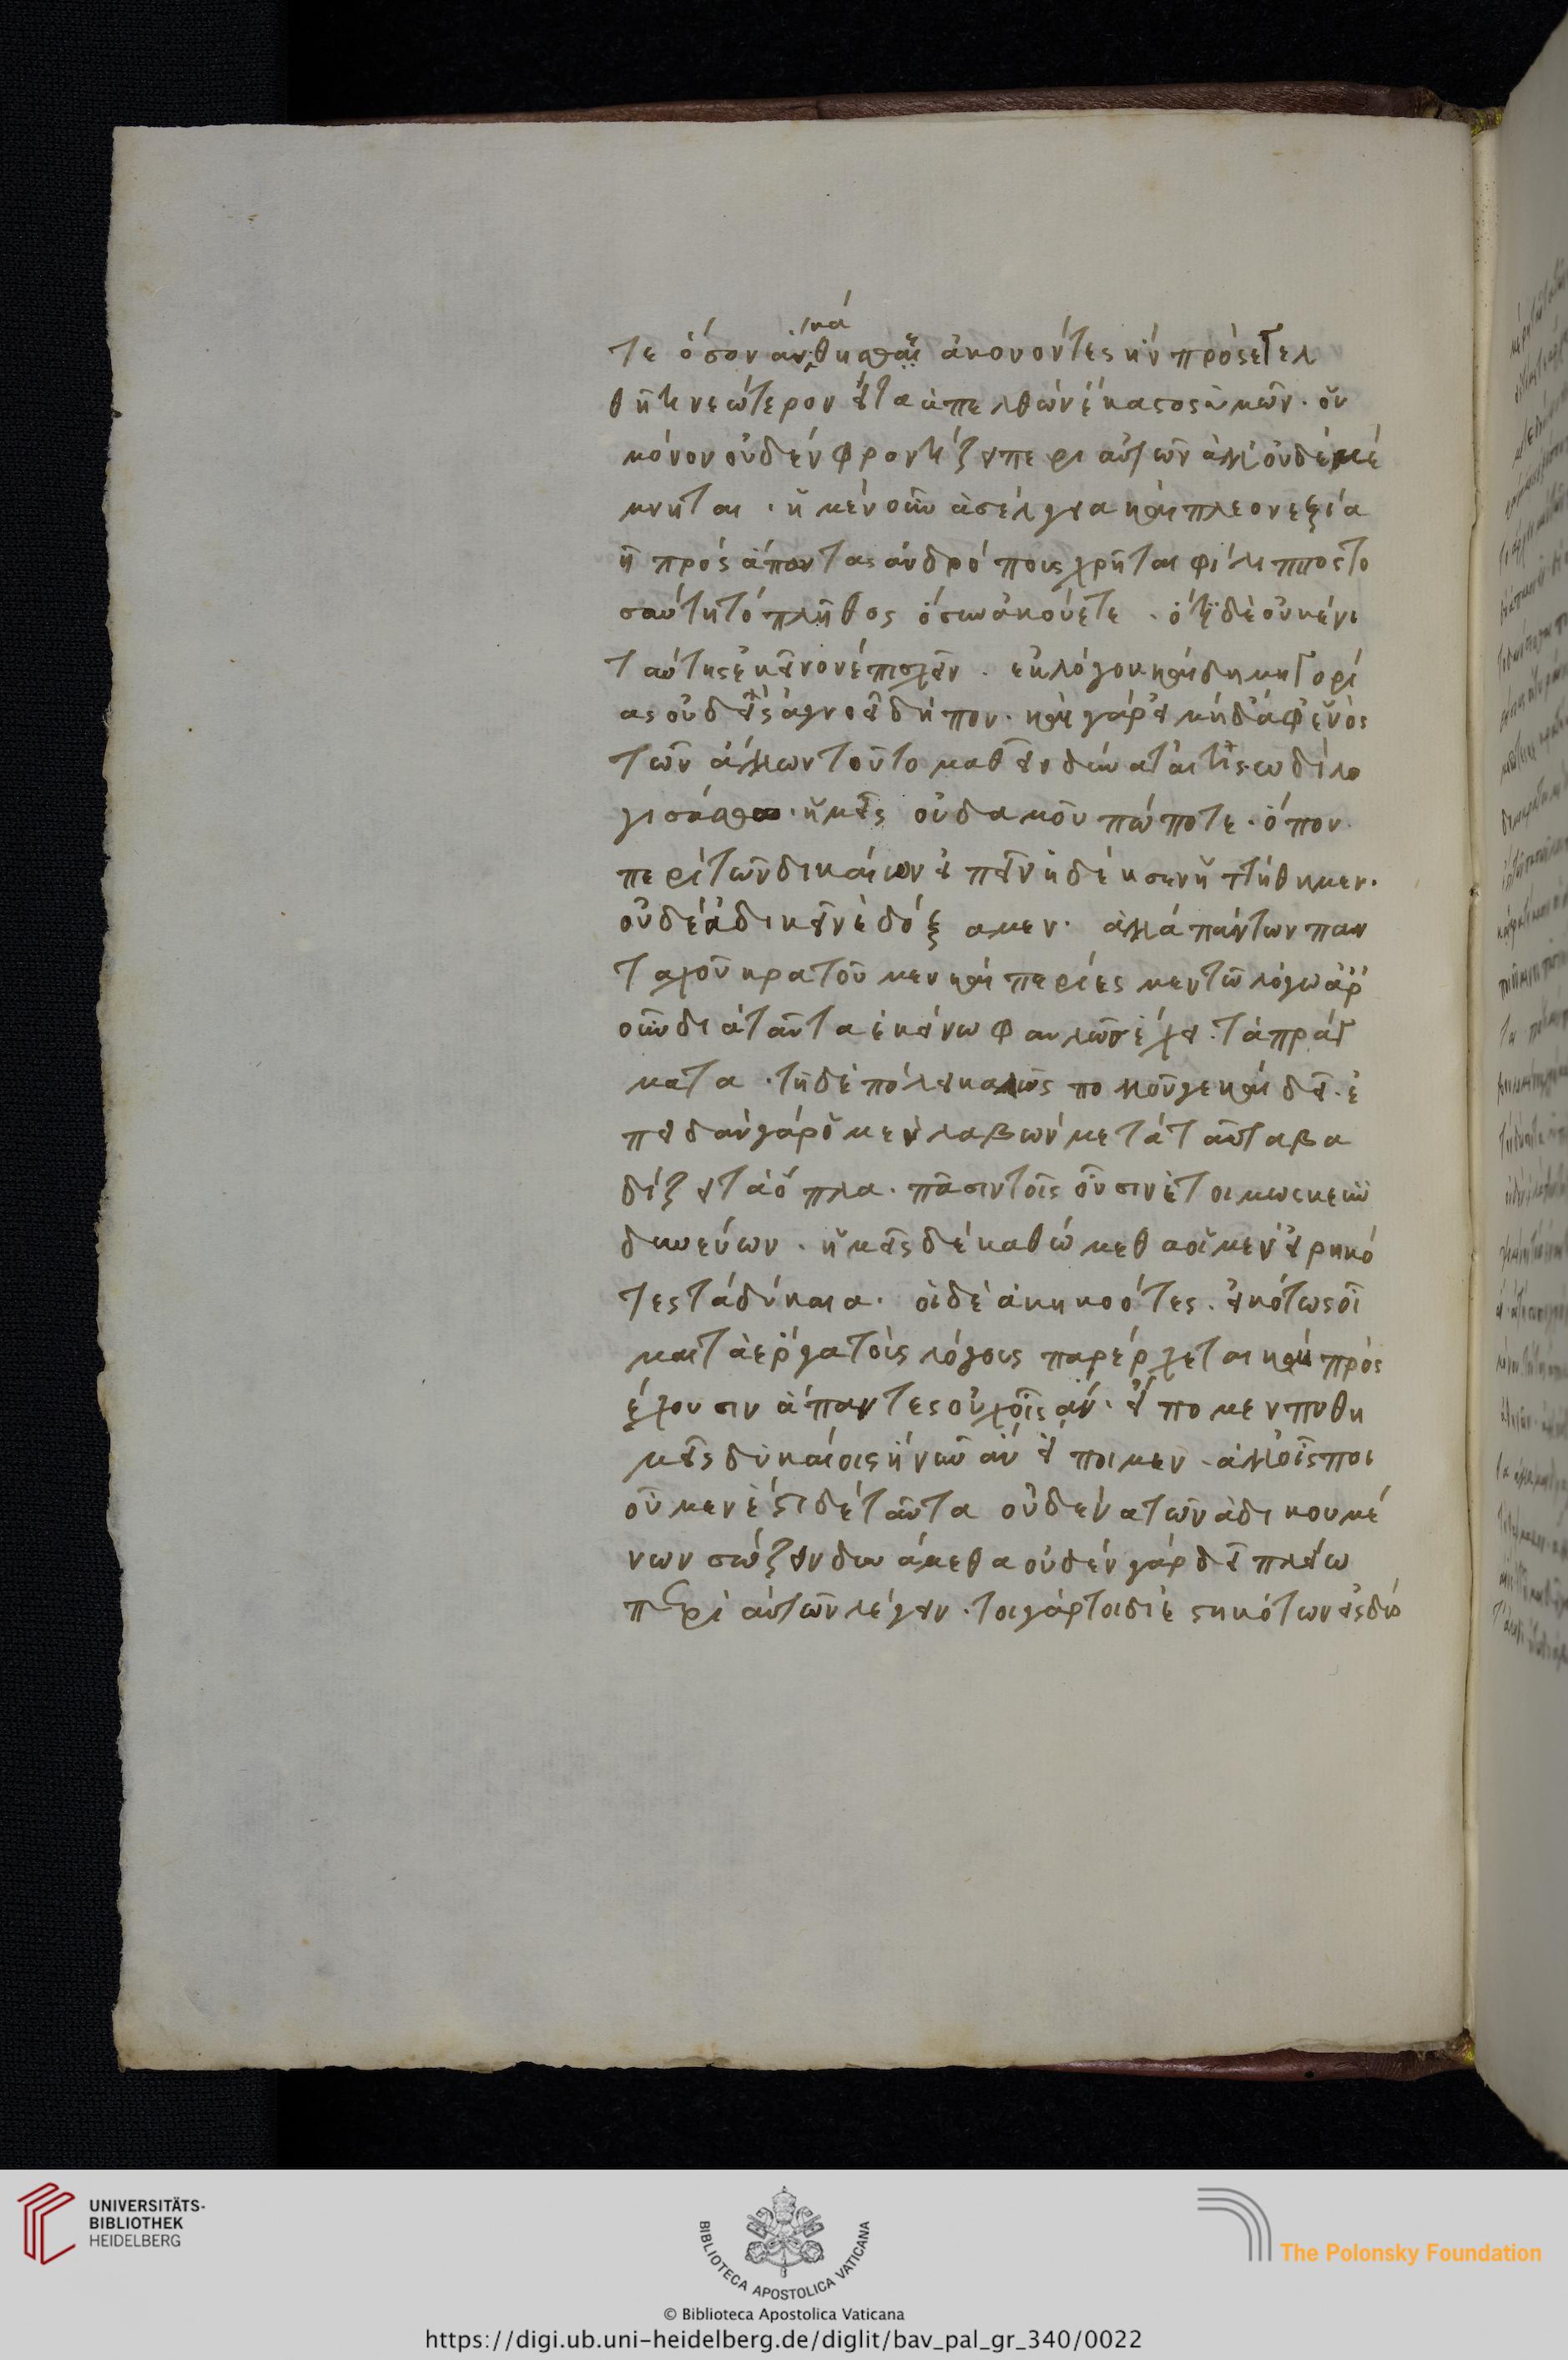 τε ὅσον ἂν κάθησθαι ἀκούοντες ἢν προσαγγελ
θῆτι νεώτερον εἶτα ἀπελθὼν ἕκαστος ὑμῶν. οὐ
μόνον οὐδὲν φροντίζει περι αὐτῶν ἀλλ' οὐδὲ μέ
μνηται. ἡ μὲν οὖν ἀσέλγεια καὶ πλεονεξία
ἣ πρὸς ἅπαντας ἀνδρόποις χρῆται φίλιππος το
σαύτη τὸ πλῆθος ὅσην ἀκούετε. ὅτι δὲ οὐκ ἔνι
ταύτης ἐκεῖνον ἐπισχεῖν. ἐκ λόγου καὶ δημηγορί
ας οὐδεὶς ἀγνοεῖ δήπου. καὶ γὰρ εἰ μηδ' ἀφ' ἑνὸς
τῶν ἄλλων τοῦτο μαθεῖν δύναταί τις ὡδὶ λο
γισάσθω. ἡμεῖς οὐδαμοῦ πώποτε. ὅπου
περὶ τῶν δικαίων εἰπεῖν ἠδέησεν ἡττήθημεν.
οὐδὲ ἀδικεῖν ἐδόξαμεν. ἀλλὰ πάντων παν
ταχοῦ κρατοῦμεν καὶ περίεσμεν τῶ λόγω ἆρ'
οὖν διὰ ταῦτα ἐκείνω φαύλως ἔχει. τὰ πράγ
ματα. τῆ δὲ πόλει καλῶς πολλοῦ γε καὶ δεῖ. ἐ
πειδὰν γὰρ ὁ μὲν λαβὼν μετὰ ταῦτα βα
δίζει τὰ ὅπλα. πᾶσιν τοῖς οὖσιν ἑτοίμως κειν
δυνεύων. ἡμεῖς δὲ καθώμεθα οἱ μὲν εἰρηκό
τες τὰ δίκαια. οἱ δὲ ἀκηκοότες. εἰκότως οἶ
μαι τὰ ἔργα τοὺς λόγοις παρέρχεται καὶ πρὸς
έχουσιν ἅπαντες οὐχ οἷς ἂν. εἴπομεν ποθη
μεῖς δικαίοις ἢ νῦν ἂν εἴποιμεν. ἀλλ' οἷς ποι
οῦμεν ἔστι δὲ ταῦτα οὐδένα τῶν ἀδικουμέ
νων σώζειν δυνάμεθα οὐδὲν γὰρ δεῖ πλείω
περὶ αὐτῶν λέγειν. τοιγάρτοι διεστηκότων εἰς δύο
UNIVERSITÄTS-
BIBLIOTHEK
HEIDELBERG
BIBLIOTECA APOSTOLICA VATICANA
The Polonsky Foundation
© Biblioteca Apostolica Vaticana
https://digi.ub.uni-heidelberg.de/diglit/bav_pal_gr_340/0022